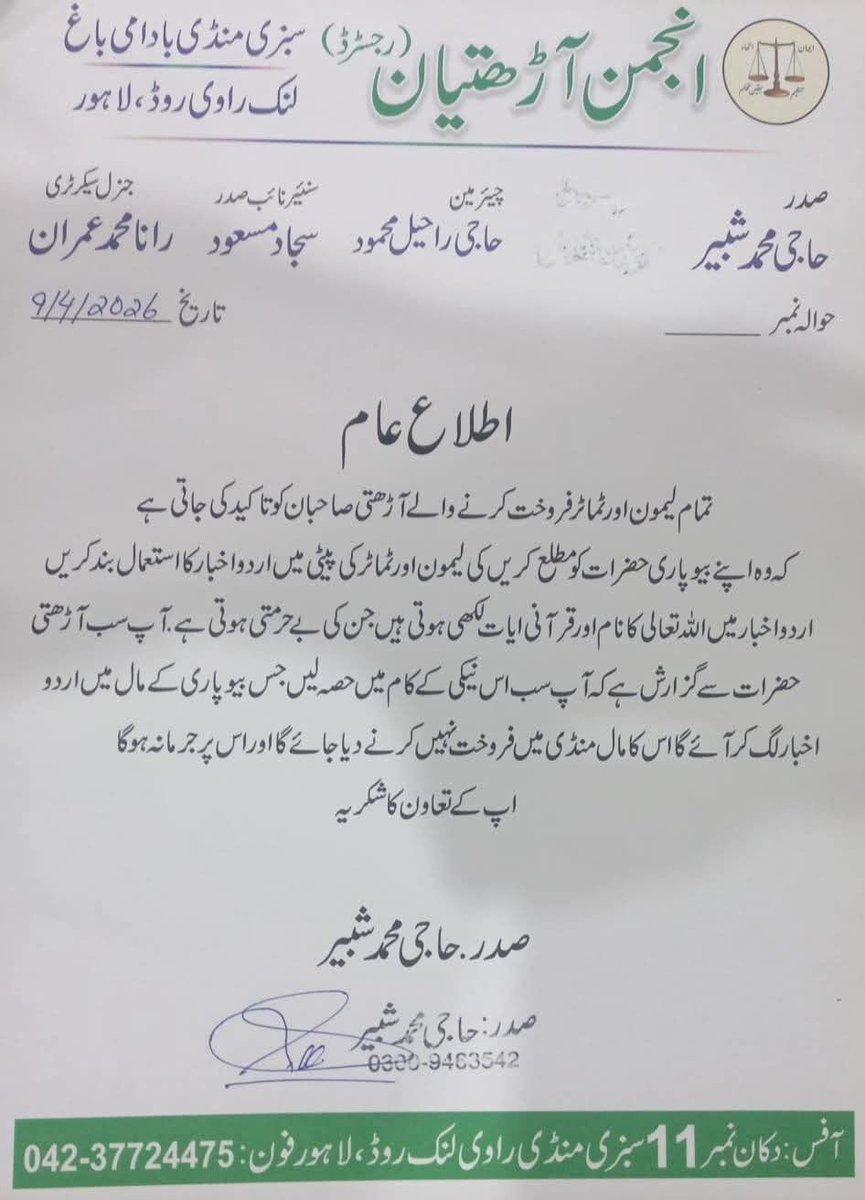 انجمن آڑھتیان (رجسٹرڈ) سبزی منڈی بادامی باغ
لنک راوی روڈ، لاہور
ایمان اتحاد
تنظیم
صدر چیئرمین سنیئر نائب صدر جنرل سیکرٹری
حاجی محمد شبیر حاجی راحیل محمود سجاد مسعود رانا محمد عمران
حوالہ نمبر تاریخ 9/4/2026
اطلاع عام
تمام لیمون اور ٹماٹر فروخت کرنے والے آڑھتی صاحبان کو تاکید کی جاتی ہے
کہ وہ اپنے بیوپاری حضرات کو مطلع کریں کی لیمون اور ٹماٹر کی پیٹی میں اردو اخبار کا استعمال بند کریں
اردو اخبار میں اللہ تعالی کا نام اور قرآنی ایات لکھی ہوتی ہیں جن کی بے حرمتی ہوتی ہے. آپ سب آڑھتی
حضرات سے گزارش ہے کہ آپ سب اس نیکی کے کام میں حصہ لیں جس بیوپاری کے مال میں اردو
اخبار لگ کر آئے گا اس کا مال منڈی میں فروخت نہیں کرنے دیا جائے گا اور اس پر جرمانہ ہوگا
اپ کے تعاون کا شکریہ
صدر. حاجی محمد شبیر
صدر: حاجی محمد شبیر
0300-9463542
آفس: دکان نمبر 11 سبزی منڈی راوی لنک روڈ، لاہور فون: 042-37724475